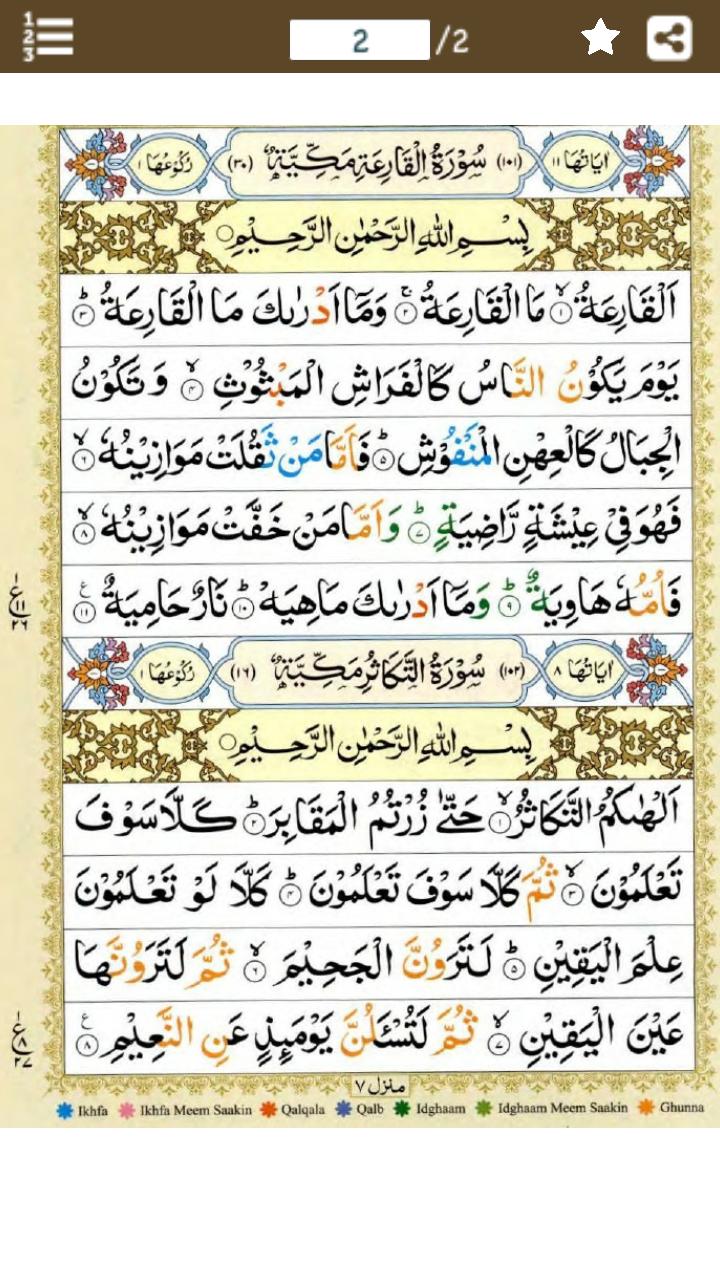 1
2
3
2
/2
اٰيَاتُهَا ١١
(١٠١) سُوْرَةُ الْقَارِعَةِ مَكِّيَّةٌ (٣٠)
رُكُوْعُهَا ١
بِسْمِ اللهِ الرَّحْمٰنِ الرَّحِيْمِ
اَلْقَارِعَةُ ۙ﴿١﴾ مَا الْقَارِعَةُ ۚ﴿٢﴾ وَمَاۤ اَدْرٰىكَ مَا الْقَارِعَةُ ؕ﴿٣﴾
يَوْمَ يَكُوْنُ النَّاسُ كَالْفَرَاشِ الْمَبْثُوْثِ ۙ﴿٤﴾ وَتَكُوْنُ
الْجِبَالُ كَالْعِهْنِ الْمَنْفُوْشِ ؕ﴿٥﴾ فَاَمَّا مَنْ ثَقُلَتْ مَوَازِيْنُهٗ ۙ﴿٦﴾
فَهُوَ فِيْ عِيْشَةٍ رَّاضِيَةٍ ؕ﴿٧﴾ وَاَمَّا مَنْ خَفَّتْ مَوَازِيْنُهٗ ۙ﴿٨﴾
فَاُمُّهٗ هَاوِيَةٌ ؕ﴿٩﴾ وَمَاۤ اَدْرٰىكَ مَاهِيَهْ ؕ﴿١٠﴾ نَارٌ حَامِيَةٌ ﴿١١﴾
ع
١١
٢٦
اٰيَاتُهَا ٨
(١٠٢) سُوْرَةُ التَّكَاثُرِ مَكِّيَّةٌ (١٦)
رُكُوْعُهَا ١
بِسْمِ اللهِ الرَّحْمٰنِ الرَّحِيْمِ
اَلْهٰىكُمُ التَّكَاثُرُ ۙ﴿١﴾ حَتّٰى زُرْتُمُ الْمَقَابِرَ ؕ﴿٢﴾ كَلَّا سَوْفَ
تَعْلَمُوْنَ ۙ﴿٣﴾ ثُمَّ كَلَّا سَوْفَ تَعْلَمُوْنَ ؕ﴿٤﴾ كَلَّا لَوْ تَعْلَمُوْنَ
عِلْمَ الْيَقِيْنِ ؕ﴿٥﴾ لَتَرَوُنَّ الْجَحِيْمَ ۙ﴿٦﴾ ثُمَّ لَتَرَوُنَّهَا
عَيْنَ الْيَقِيْنِ ۙ﴿٧﴾ ثُمَّ لَتُسْـَٔلُنَّ يَوْمَىِٕذٍ عَنِ النَّعِيْمِ ﴿٨﴾
ع
٨
٢٧
منزل ٧
Ikhfa Ikhfa Meem Saakin Qalqala Qalb Idghaam Idghaam Meem Saakin Ghunna